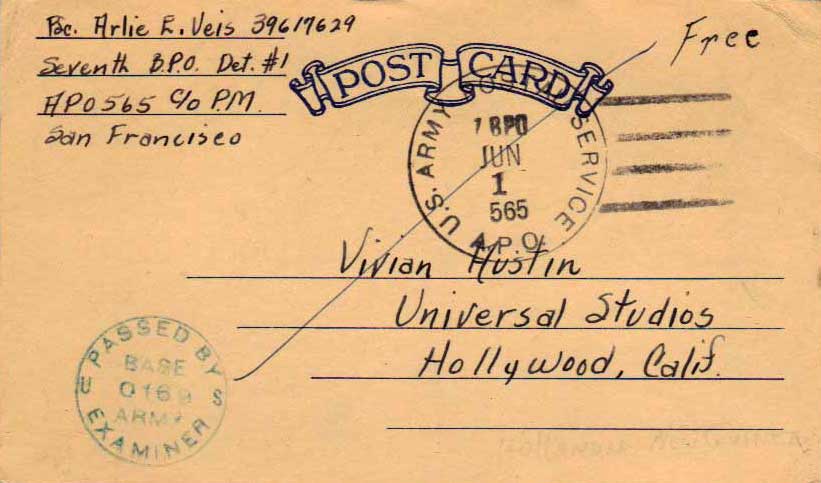 Pvc. Arlie E. Veis 39617629
Seventh B.P.O. Det. #1
APO 565 C/o P.M.
San Francisco
Free
POST CARD
U.S. ARMY SERVICE
1 BPO
JUN
1
565
A.P.O.
Vivian Austin
Universal Studios
Hollywood, Calif.
PASSED BY
BASE
0169
ARMY
U S
EXAMINER